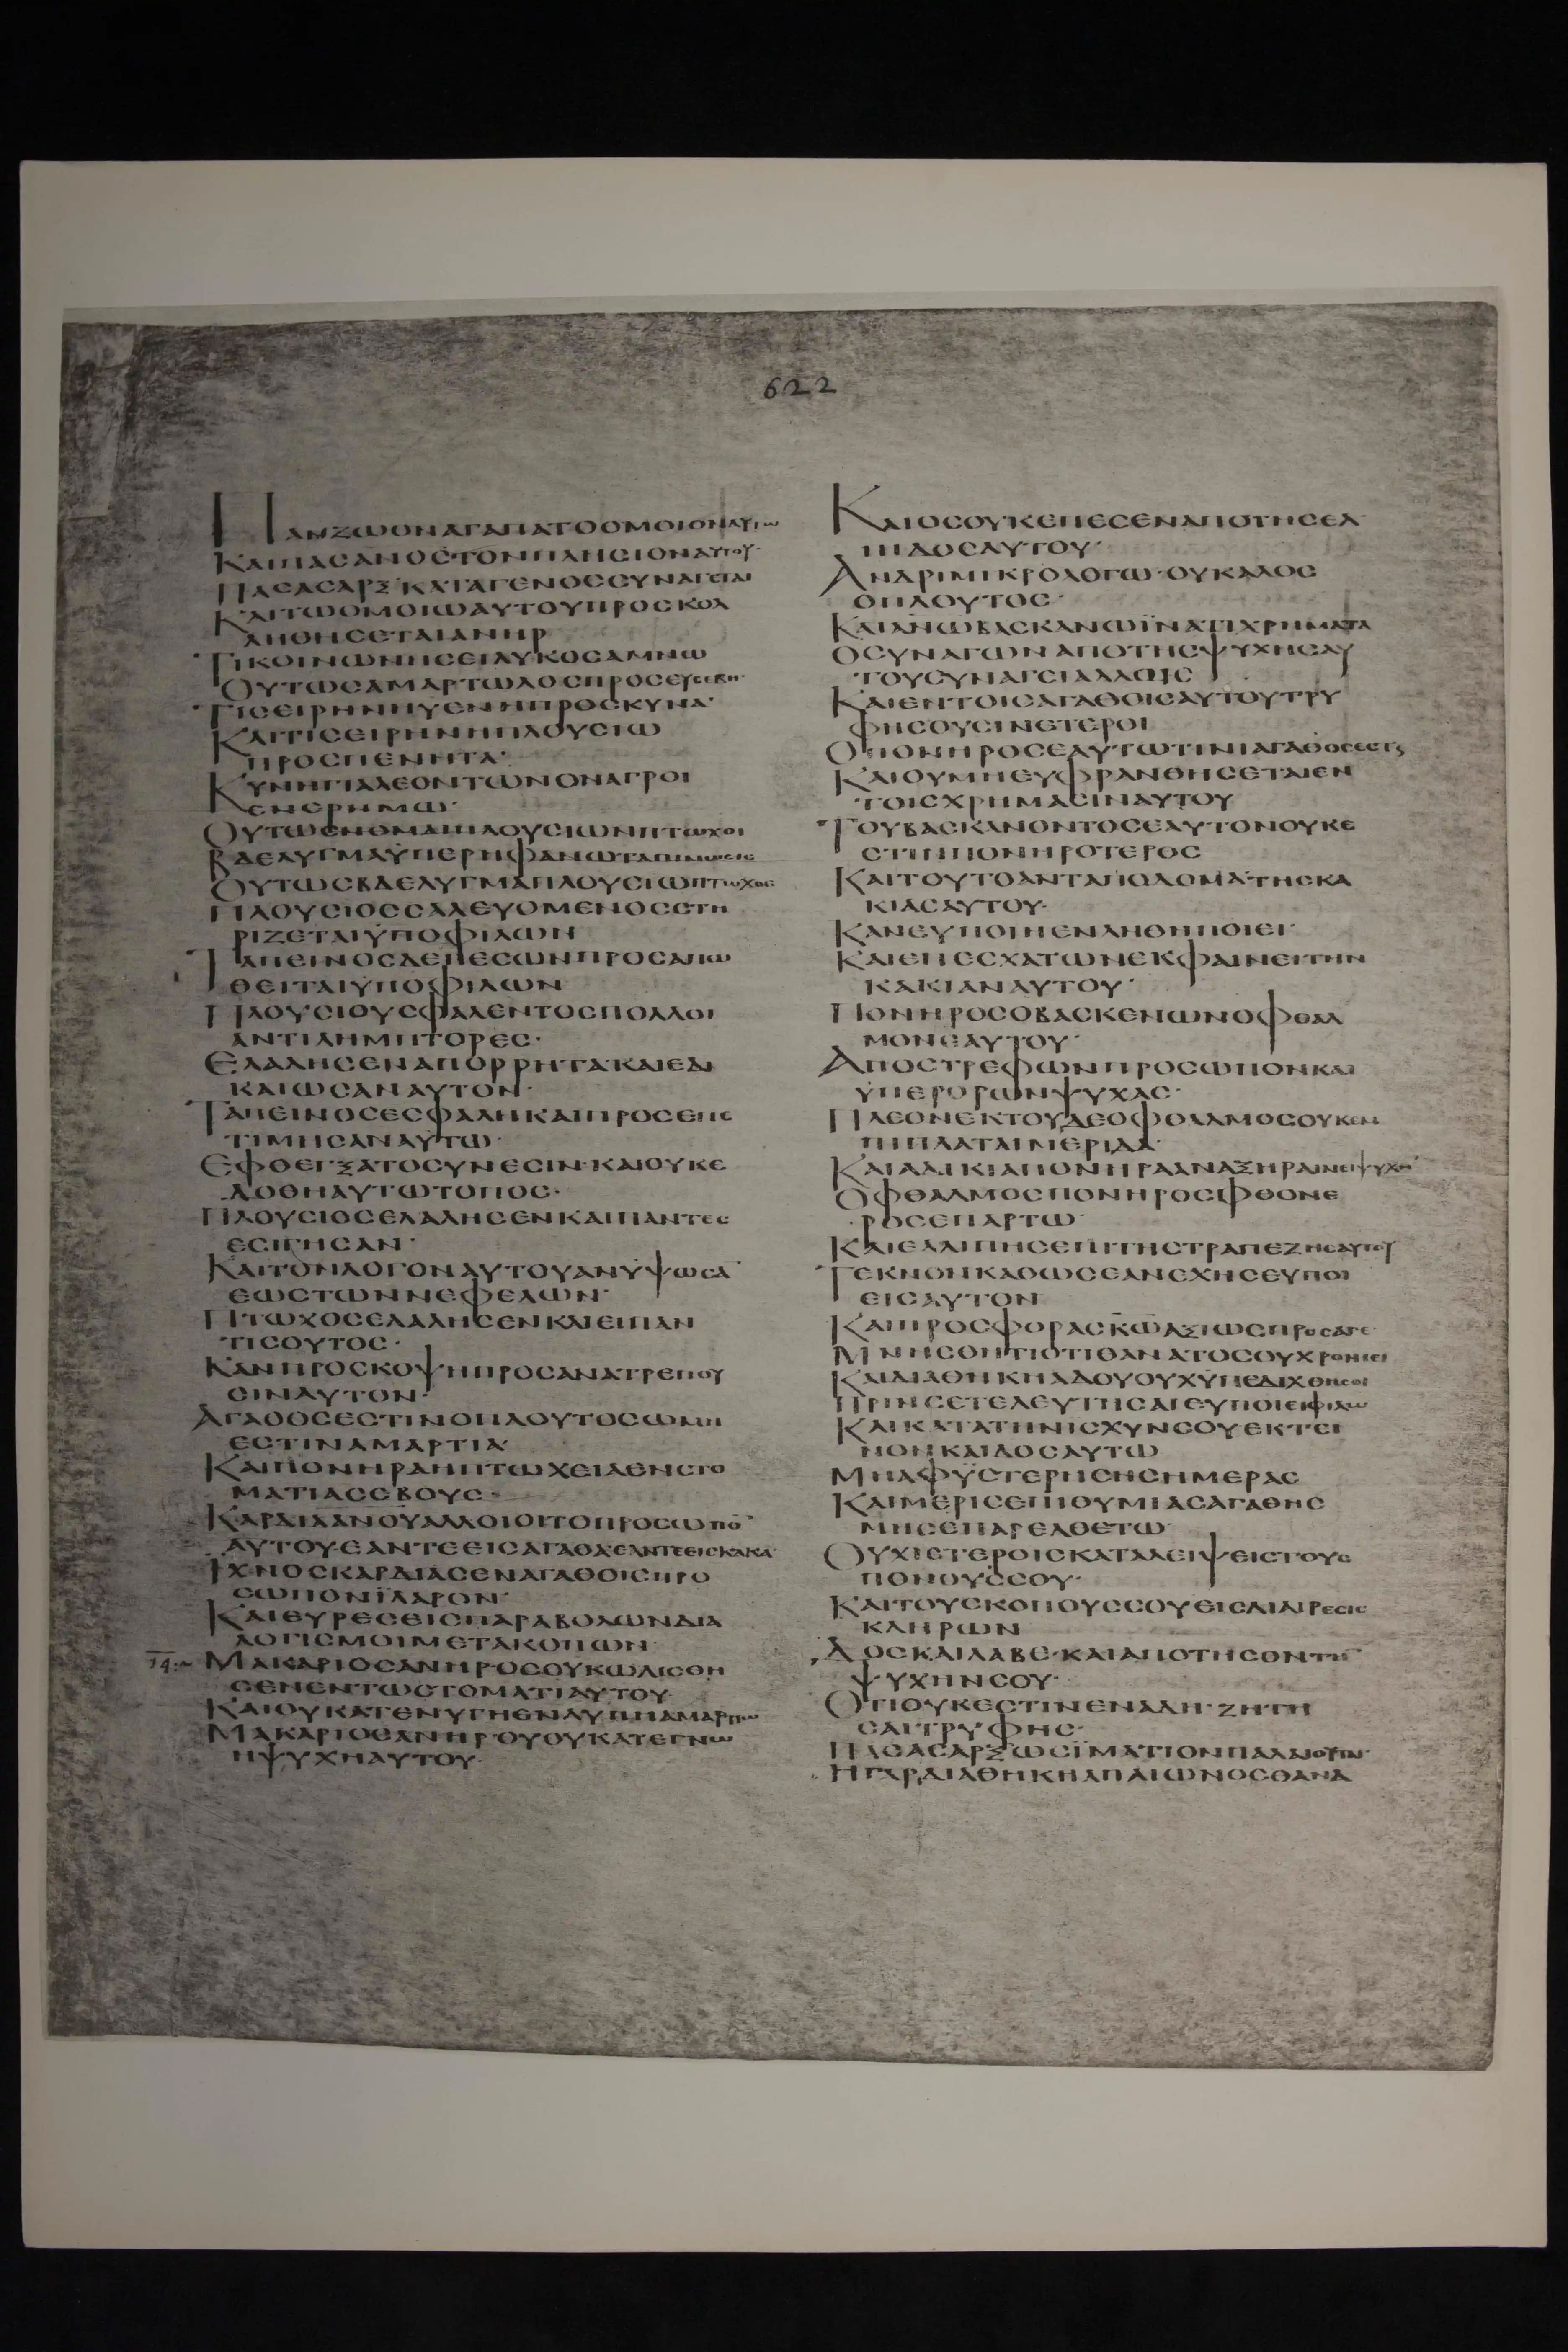 622
ΠΑΝΖΩΟΝΑΓΑΠΑΤΟΟΜΟΙΟΝΑΥΤΩ
ΚΑΙΠΑΣΑΝΟΣΤΟΝΠΛΗΣΙΟΝΑΥΤΟΥ·
ΠΑΣΑΣΑΡΞΚΑΤΑΓΕΝΟΣΣΥΝΑΓΕΤΑΙ
ΚΑΙΤΩΟΜΟΙΩΑΥΤΟΥΠΡΟΣΚΟΛ
ΛΗΘΗΣΕΤΑΙΑΝΗΡ
ΤΙΚΟΙΝΩΝΗΣΕΙΛΥΚΟΣΑΜΝΩ
ΟΥΤΩΣΑΜΑΡΤΩΛΟΣΠΡΟΣΕΥΣΕΒΗ·
ΤΙΣΕΙΡΗΝΗΥΕΝΗΠΡΟΣΚΥΝΑ·
ΚΑΙΤΙΣΕΙΡΗΝΗΠΛΟΥΣΙΩ
ΠΡΟΣΠΕΝΗΤΑ·
ΚΥΝΗΓΙΑΛΕΟΝΤΩΝΟΝΑΓΡΟΙ
ΕΝΕΡΗΜΩ·
ΟΥΤΩΣΝΟΜΑΙΠΛΟΥΣΙΩΝΠΤΩΧΟΙ
ΒΔΕΛΥΓΜΑΫΠΕΡΗΦΑΝΩΤΑΠΙΝΩΣΙΣ
ΟΥΤΩΣΒΔΕΛΥΓΜΑΠΛΟΥΣΙΩΠΤΩΧΟΣ
ΠΛΟΥΣΙΟΣΣΑΛΕΥΟΜΕΝΟΣΣΤΗ
ΡΙΖΕΤΑΙΫΠΟΦΙΛΩΝ
ΤΑΠΕΙΝΟΣΔΕΠΕΣΩΝΠΡΟΣΑΠΩ
ΘΕΙΤΑΙΫΠΟΦΙΛΩΝ
ΠΛΟΥΣΙΟΥΣΦΑΛΕΝΤΟΣΠΟΛΛΟΙ
ΑΝΤΙΛΗΜΠΤΟΡΕΣ·
ΕΛΑΛΗΣΕΝΑΠΟΡΡΗΤΑΚΑΙΕΔΙ
ΚΑΙΩΣΑΝΑΥΤΟΝ·
ΤΑΠΕΙΝΟΣΕΣΦΑΛΗΚΑΙΠΡΟΣΕΠΕ
ΤΙΜΗΣΑΝΑΥΤΩ·
ΕΦΘΕΓΞΑΤΟΣΥΝΕΣΙΝ·ΚΑΙΟΥΚΕ
ΔΟΘΗΑΥΤΩΤΟΠΟΣ·
ΠΛΟΥΣΙΟΣΕΛΑΛΗΣΕΝΚΑΙΠΑΝΤΕΣ
ΕΣΙΓΗΣΑΝ·
ΚΑΙΤΟΝΛΟΓΟΝΑΥΤΟΥΑΝΥΨΩΣΑ
ΕΩΣΤΩΝΝΕΦΕΛΩΝ·
ΠΤΩΧΟΣΕΛΑΛΗΣΕΝΚΑΙΕΙΠΑΝ
ΤΙΣΟΥΤΟΣ·
ΚΑΝΠΡΟΣΚΟΨΗΠΡΟΣΑΝΑΤΡΕΠΟΥ
ΣΙΝΑΥΤΟΝ·
ΑΓΑΘΟΣΕΣΤΙΝΟΠΛΟΥΤΟΣΩΜΗ
ΕΣΤΙΝΑΜΑΡΤΙΑ
ΚΑΙΠΟΝΗΡΑΗΠΤΩΧΕΙΑΕΝΣΤΟ
ΜΑΤΙΑΣΕΒΟΥΣ·
ΚΑΡΔΙΑΑΝΟΥΑΛΛΟΙΟΙΤΟΠΡΟΣΩΠΟ
ΑΥΤΟΥΕΑΝΤΕΕΙΣΑΓΑΘΑΕΑΝΤΕΕΙΣΚΑΚΑ·
ΙΧΝΟΣΚΑΡΔΙΑΣΕΝΑΓΑΘΟΙΣΠΡΟ
ΣΩΠΟΝΪΛΑΡΟΝ·
ΚΑΙΕΥΡΕΣΕΙΣΠΑΡΑΒΟΛΩΝΔΙΑ
ΛΟΓΙΣΜΟΙΜΕΤΑΚΟΠΩΝ·
14:~ ΜΑΚΑΡΙΟΣΑΝΗΡ·ΟΣΟΥΚΩΛΙΣΘΗ
ΣΕΝΕΝΤΩΣΤΟΜΑΤΙΑΥΤΟΥ
ΚΑΙΟΥΚΑΤΕΝΥΓΗΕΝΛΥΠΗΑΜΑΡΤΙΩ
ΜΑΚΑΡΙΟΣΑΝΗΡ·ΟΥΟΥΚΑΤΕΓΝΩ
ΗΨΥΧΗΑΥΤΟΥ·
ΚΑΙΟΣΟΥΚΕΠΕΣΕΝΑΠΟΤΗΣΕΛ
ΠΙΔΟΣΑΥΤΟΥ·
ΑΝΔΡΙΜΙΚΡΟΛΟΓΩ·ΟΥΚΑΛΟΣ
ΟΠΛΟΥΤΟΣ·
ΚΑΙΑΝΩΒΑΣΚΑΝΩΪΝΑΤΙΧΡΗΜΑΤΑ
ΟΣΥΝΑΓΩΝΑΠΟΤΗΣΨΥΧΗΣΑΥ
ΤΟΥΣΥΝΑΓΕΙΑΛΛΟΙΣ
ΚΑΙΕΝΤΟΙΣΑΓΑΘΟΙΣΑΥΤΟΥΤΡΥ
ΦΗΣΟΥΣΙΝΕΤΕΡΟΙ
ΟΠΟΝΗΡΟΣΕΑΥΤΩΤΙΝΙΑΓΑΘΟΣΕΣΤΕ
ΚΑΙΟΥΜΗΕΥΦΡΑΝΘΗΣΕΤΑΙΕΝ
ΤΟΙΣΧΡΗΜΑΣΙΝΑΥΤΟΥ
ΤΟΥΒΑΣΚΑΝΟΝΤΟΣΕΑΥΤΟΝΟΥΚΕ
ΣΤΙΠΠΟΝΗΡΟΤΕΡΟΣ
ΚΑΙΤΟΥΤΟΑΝΤΑΠΟΔΟΜΑΤΗΣΚΑ
ΚΙΑΣΑΥΤΟΥ·
ΚΑΝΕΥΠΟΙΗΕΝΛΗΘΗΠΟΙΕΙ·
ΚΑΙΕΠΕΣΧΑΤΩΝΕΚΦΑΙΝΕΙΤΗΝ
ΚΑΚΙΑΝΑΥΤΟΥ·
ΠΟΝΗΡΟΣΟΒΑΣΚΕΝΩΝΟΦΘΑΛ
ΜΟΝΕΑΥΤΟΥ·
ΑΠΟΣΤΡΕΦΩΝΠΡΟΣΩΠΟΝΚΑΙ
ΫΠΕΡΟΡΩΝΨΥΧΑΣ·
ΠΛΕΟΝΕΚΤΟΥΔΕΟΦΘΑΛΜΟΣΟΥΚΕΜ
ΠΙΠΛΑΤΑΙΜΕΡΙΔΑ·
ΚΑΙΑΔΙΚΙΑΠΟΝΗΡΑΑΝΑΞΗΡΑΙΝΕΙΨΥΧΗ
ΟΦΘΑΛΜΟΣΠΟΝΗΡΟΣΦΘΟΝΕ
ΡΟΣΕΠΑΡΤΩ
ΚΑΙΕΛΛΙΠΗΣΕΠΙΤΗΣΤΡΑΠΕΖΗΣΑΥΤΟΥ
ΤΕΚΝΟΝΚΑΘΩΣΕΑΝΕΧΗΣΕΥΠΟΙ
ΕΙΣΑΥΤΟΝ
ΚΑΙΠΡΟΣΦΟΡΑΣΚΩΑΞΙΩΣΠΡΟΣΑΓΕ
ΜΝΗΣΘΗΤΙΟΤΙΘΑΝΑΤΟΣΟΥΧΡΟΝΙΕΙ
ΚΑΙΔΙΑΘΗΚΗΑΔΟΥΟΥΧΫΠΕΔΙΧΘΗΣΟΙ
ΠΡΙΝΣΕΤΕΛΕΥΤΗΣΑΙΕΥΠΟΙΕΙΦΙΛΩ
ΚΑΙΚΑΤΑΤΗΝΙΣΧΥΝΣΟΥΕΚΤΕΙ
ΝΟΝΚΑΙΔΟΣΑΥΤΩ
ΜΗΑΦΫΣΤΕΡΗΣΗΣΗΜΕΡΑΣ
ΚΑΙΜΕΡΙΣΕΠΙΘΥΜΙΑΣΑΓΑΘΗΣ
ΜΗΣΕΠΑΡΕΛΘΕΤΩ
ΟΥΧΙΕΤΕΡΟΙΣΚΑΤΑΛΕΙΨΕΙΣΤΟΥΣ
ΠΟΝΟΥΣΣΟΥ·
ΚΑΙΤΟΥΣΚΟΠΟΥΣΣΟΥΕΙΣΔΙΑΙΡΕΣΙΣ
ΚΛΗΡΩΝ
ΔΟΣΚΑΙΛΑΒΕ·ΚΑΙΑΠΟΤΗΣΟΝΤΗ
ΨΥΧΗΝΣΟΥ·
ΟΤΙΟΥΚΕΣΤΙΝΕΝΑΔΗ·ΖΗΤΗ
ΣΑΙΤΡΥΦΗΣ·
ΠΑΣΑΣΑΡΞΩΣΪΜΑΤΙΟΝΠΑΛΑΙΟΥΤΑΙ·
ΗΓΑΡΔΙΑΘΗΚΗΑΠΑΙΩΝΟΣΘΑΝΑ